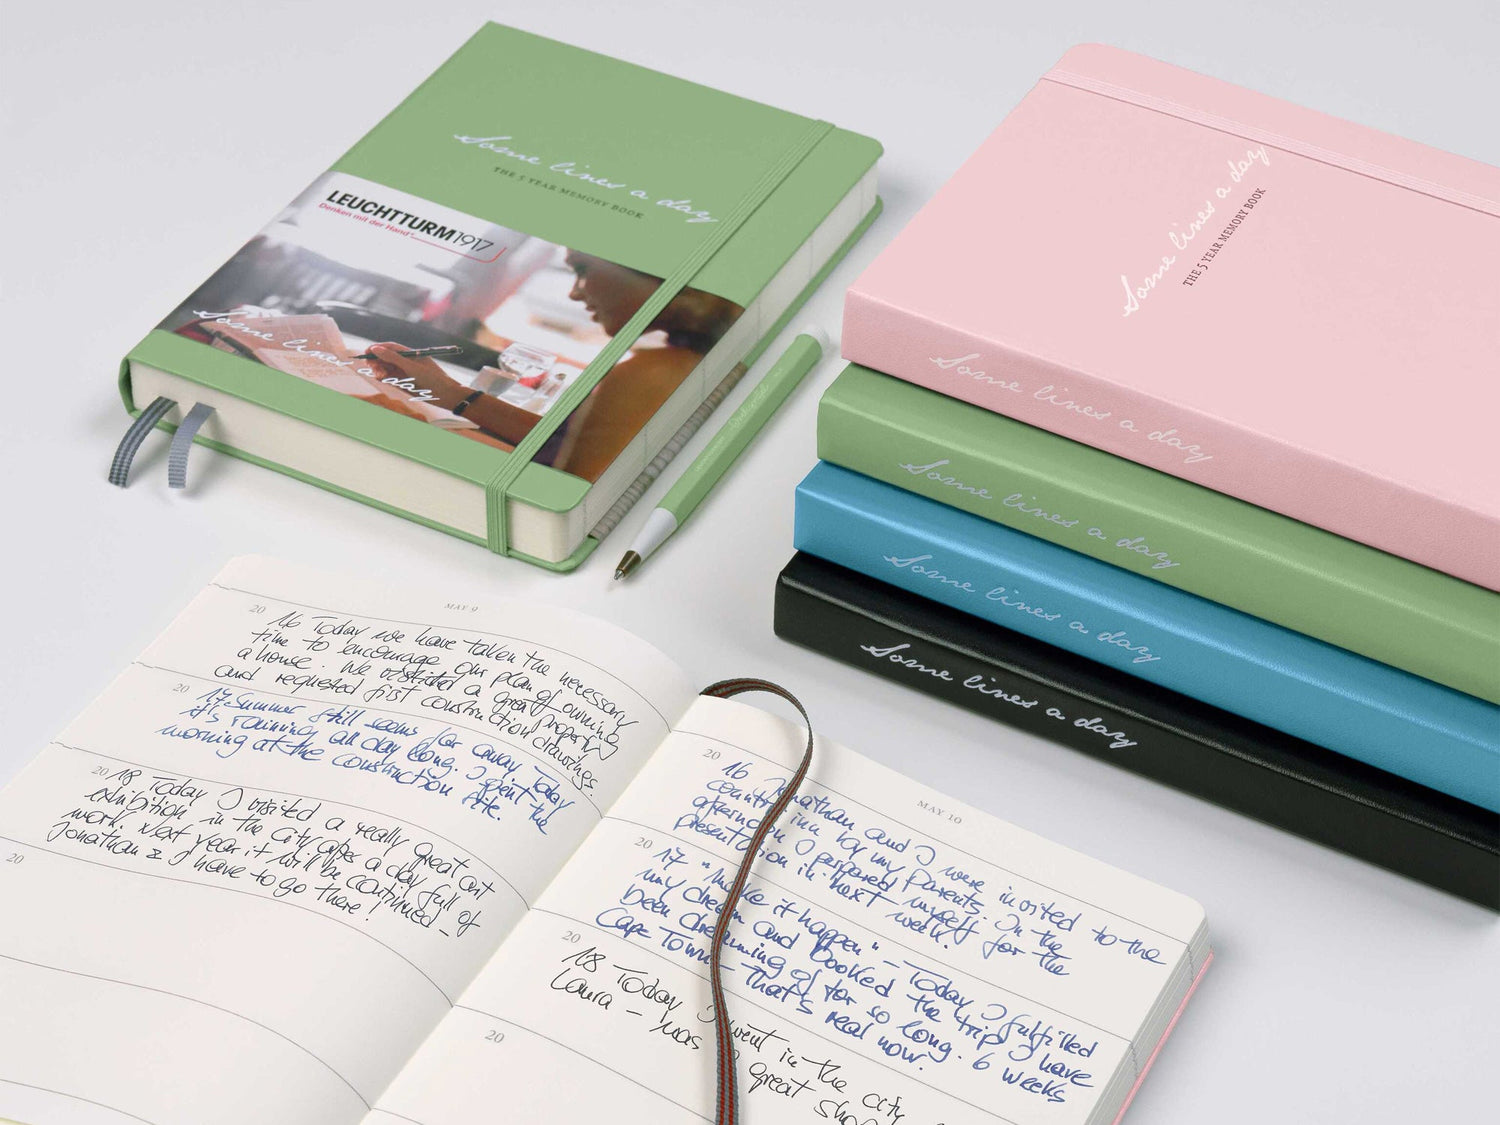 Some lines a day
THE 5 YEAR MEMORY BOOK
LEUCHTTURM1917
Denken mit der Hand
Some lines a day
Some lines a day
THE 5 YEAR MEMORY BOOK
Some lines a day
Some lines a day
Some lines a day
Some lines a day
MAY 9
20 16 Today we have taken the necessary
time to encourage our plan of owning
a house. We visited a great property
and requested first construction drawings
20 17 Summer still seems far away Today
it's raining all day long. I spent the
morning at the construction site.
20 18 Today I visited a really great art
exhibition in the city after a day full of
work. Next year it will be continued_
Jonathan & I have to go there!
20
MAY 10
20
16 Jonathan and I were invited to the
country inn by my parents. In the
afternoon I prepared myself for the
presentation in next week.
20
17 "Make it happen" - Today I fulfilled
my dream and booked the trip I have
been dreaming of for so long. 6 weeks
Cape Town - that's real now.
20
18 Today I went in the city
Laura - was a great
20